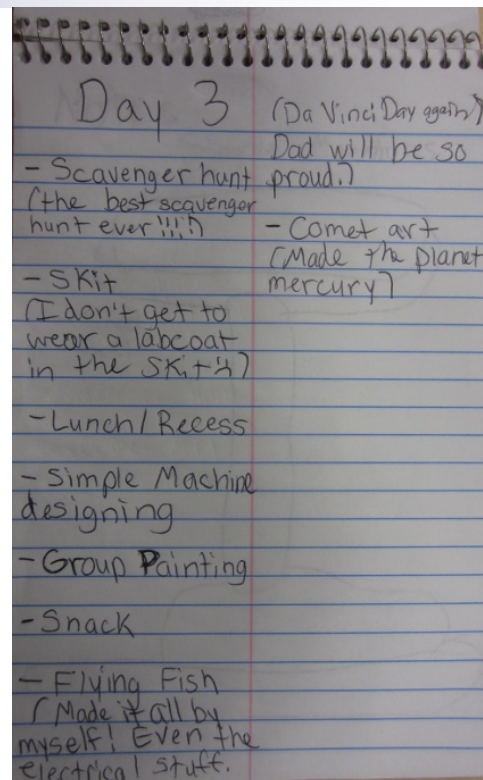 Day 3
- Scavenger hunt
(the best scavenger
hunt ever!!!!)
- Skit
(I don't get to
wear a labcoat
in the skit)
- Lunch/Recess
- Simple Machine
designing
- Group Painting
- Snack
- Flying Fish
(Made it all by
myself! Even the
electrical stuff.
(Da Vinci Day again)
Dad will be so
proud.)
- Comet art
(Made the planet
mercury)